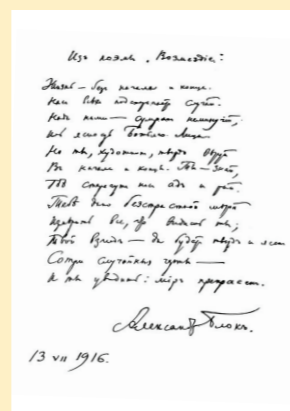 Изъ поэмы „Возмездіе“:
Жизнь — безъ начала и конца.
Насъ всѣхъ подстерегаетъ случай.
Надъ нами — сумракъ неминучій,
Иль ясность Божьяго Лица.
Но ты, художникъ, твердо вѣруй
Въ начала и концы. Ты — знай,
Гдѣ стерегутъ насъ адъ и рай.
Тебѣ дано безстрастной мѣрой
Измѣрить все, что видишь ты;
Твой взглядъ — да будетъ твердъ и ясенъ
Сотри случайныя черты —
И ты увидишь: міръ прекрасенъ.
Александръ Блокъ.
13 VII 1916.